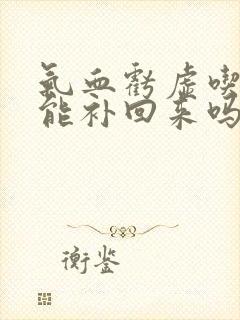 氣血虧虛喫
能补回来吗
衡鉴